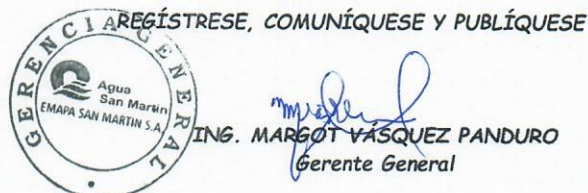 REGÍSTRESE, COMUNÍQUESE Y PUBLÍQUESE
GERENCIA GENERAL
Agua
San Martín
EMAPA SAN MARTIN S.A.
ING. MARGOT VÁSQUEZ PANDURO
Gerente General